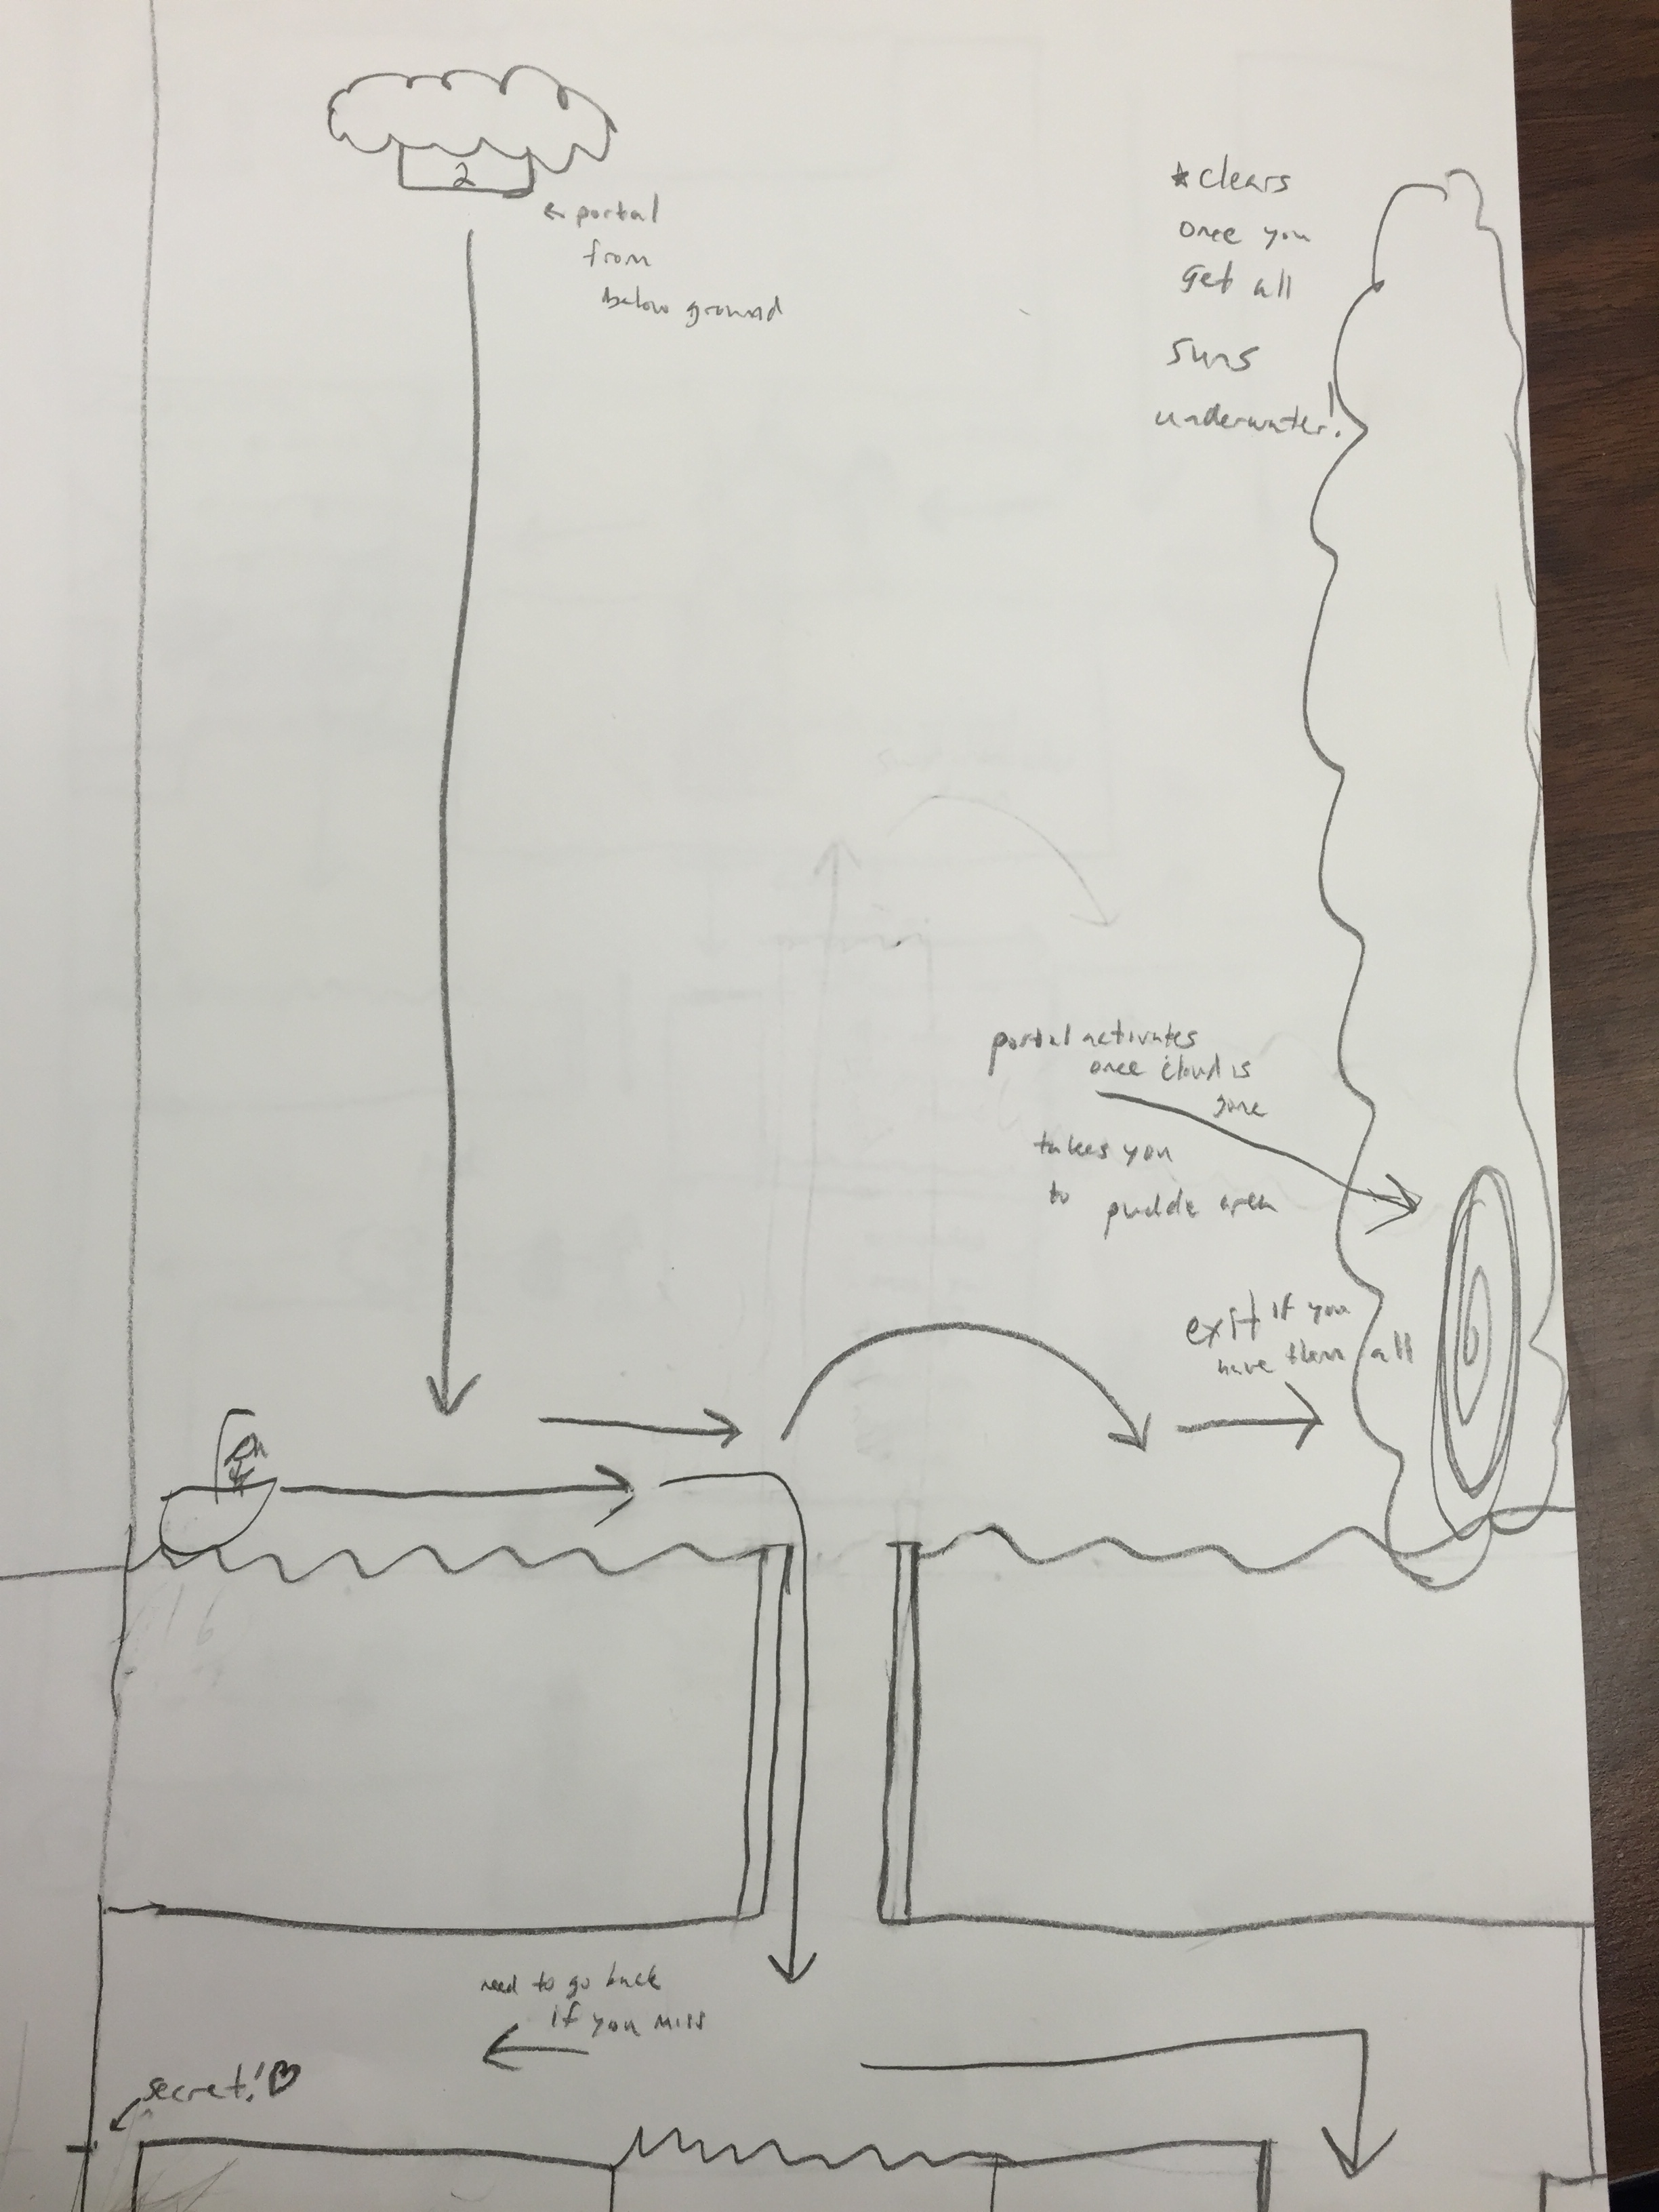 2
← portal
from
below ground
*clears
once you
get all
suns
underwater!
portal activates
once cloud is
gone
takes you
to puddle area
exit if you
have them all
need to go back
if you miss
secret! ♡